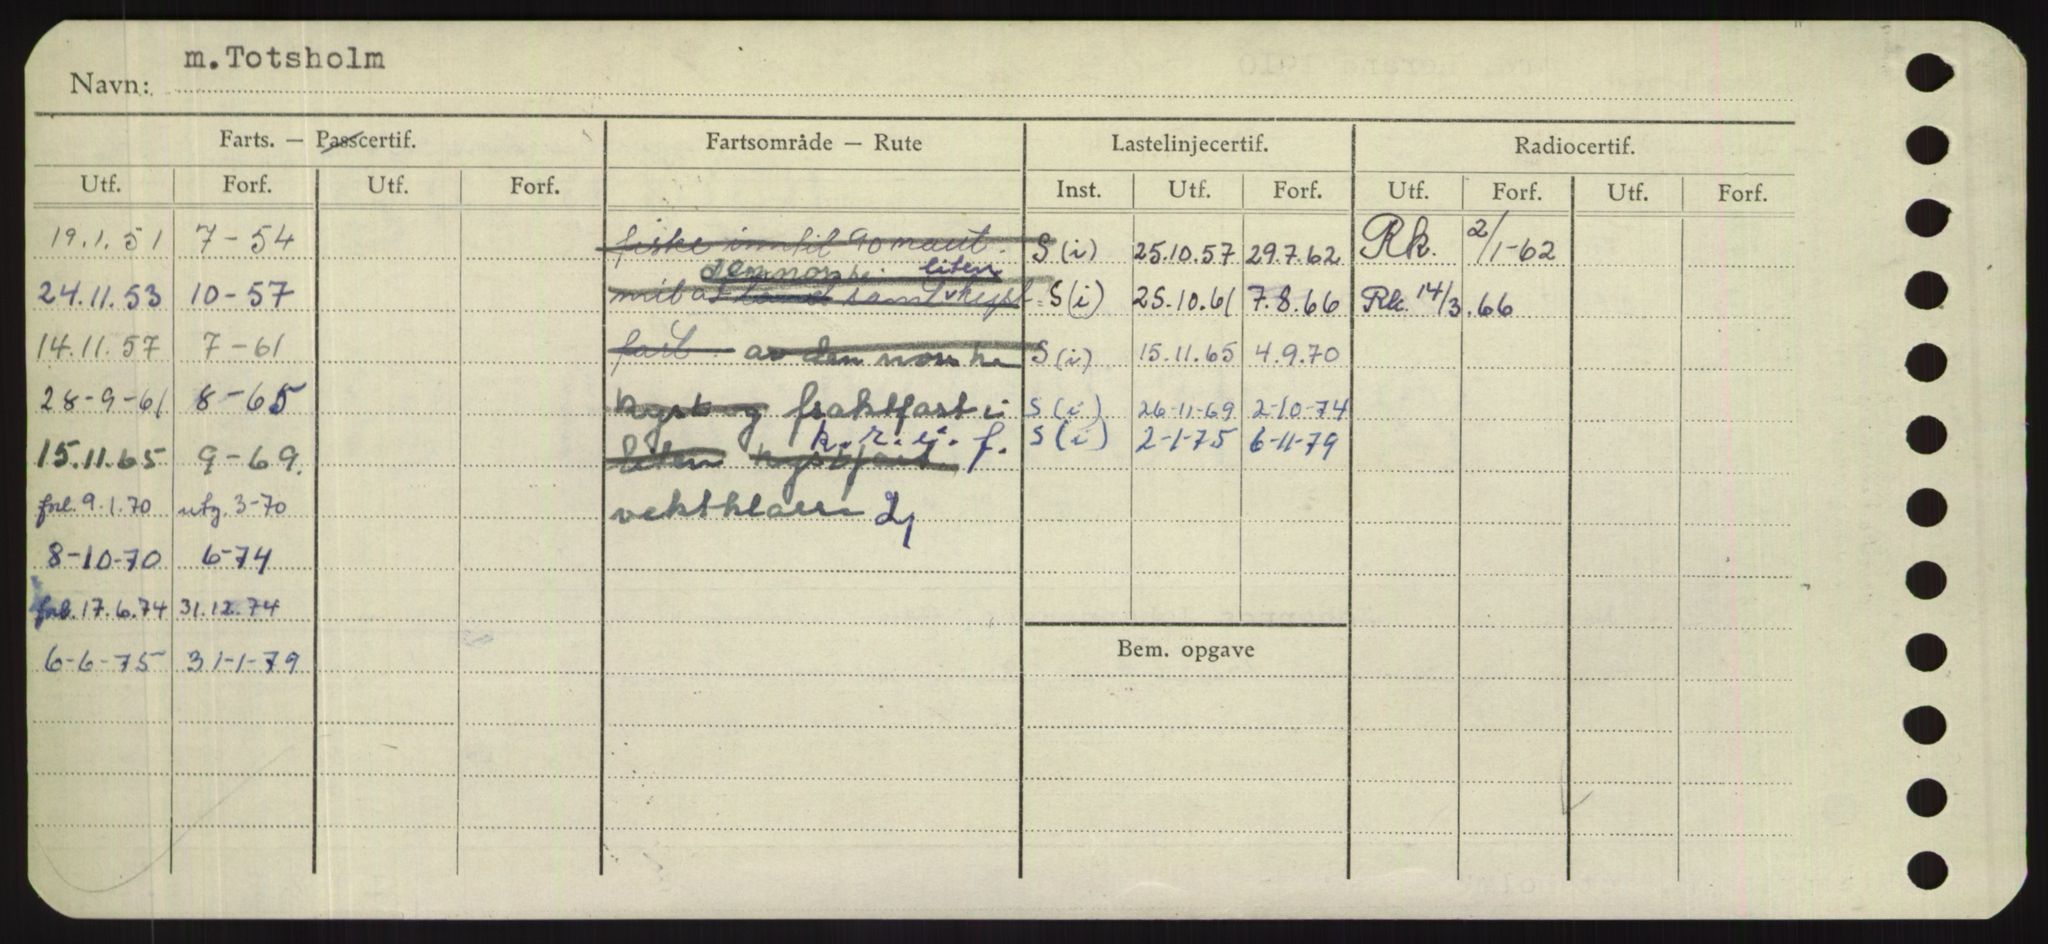 m.Totsholm
Navn:
Farts. — Passcertif. Fartsområde — Rute Lastelinjecertif. Radiocertif.
Utf. Forf. Utf. Forf. Inst. Utf. Forf. Utf. Forf. Utf. Forf.
19.1.51 7-54 fiske inntil 90 naut. S(i) 25.10.57 29.7.62 Rk. 2/1-62
den norske liten
24.11.53 10-57 mil av land samt kyst- S(i) 25.10.61 7.8.66 Rk. 14/3.66
14.11.57 7-61 fart. av den norske S(i) 15.11.65 4.9.70
28-9-61 8-65 kyst og fraktfart i S(i) 26-11-69 2-10-74
k.r.i. f. S(i) 2-1-75 6-11-79
15.11.65 9-69. liten kystfart
frl. 9.1.70 utg. 3-70 vektklasse 2
8-10-70 6-74
frl. 17.6.74 31.12.74
6-6-75 31-1-79
Bem. opgave